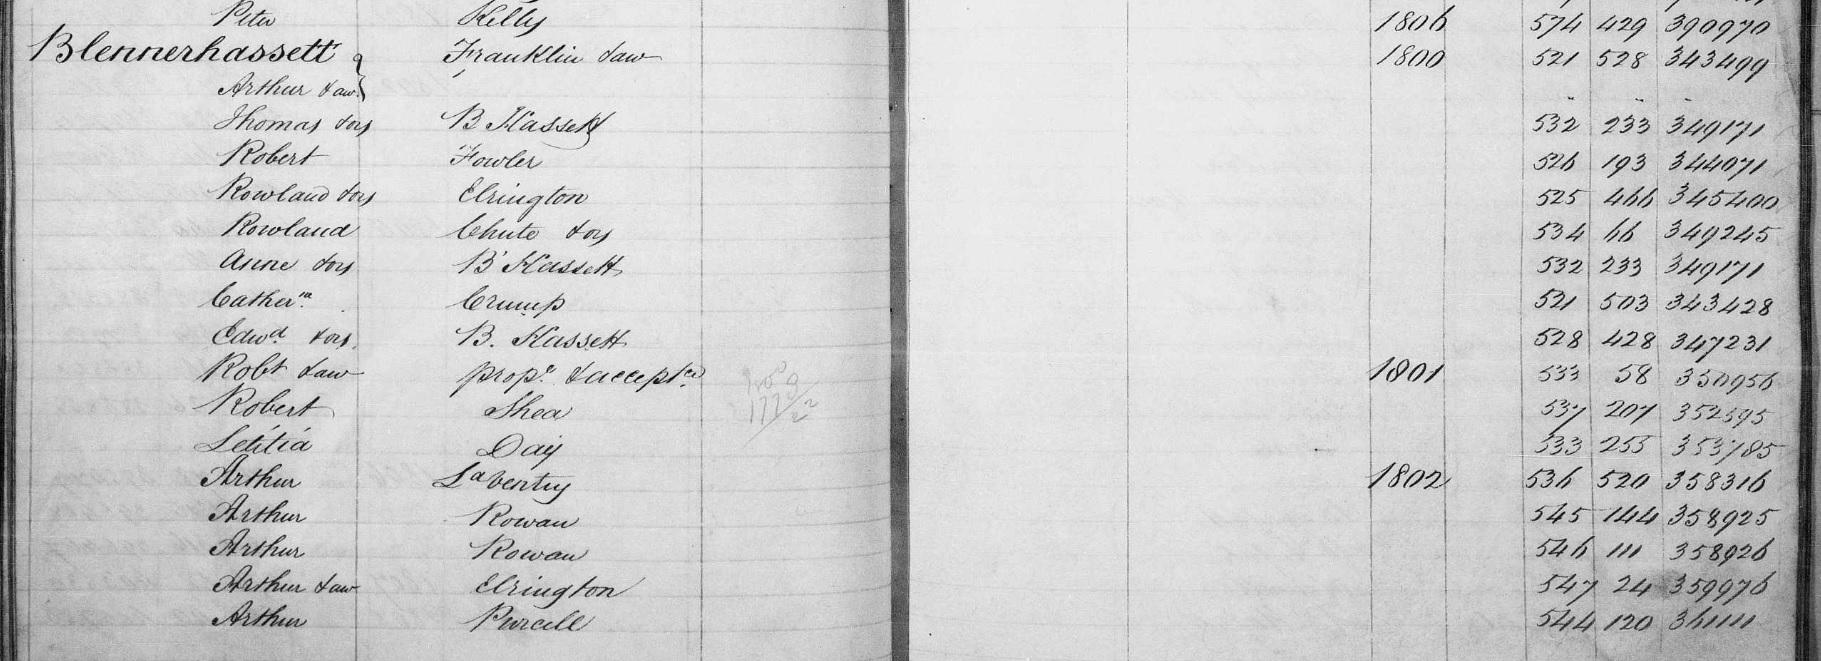 Peter Kelly 1806 574 429 390970
Blennerhassett Franklin & aw 1800 521 528 343499
Arthur & aw
Thomas & ors B'Hassett 532 233 349171
Robert Fowler 526 193 344071
Rowland & ors Elrington 525 466 345400
Rowland Chute & ors 534 66 349245
Anne & ors B'Hassett 532 233 349171
Cathern. Crump 521 503 343428
Edwd. & ors. B. Hassett 528 428 347231
Robt & aw prope. & accepte. 1801 533 58 350956
Robert Shea 537 207 352595
Letitia Day 533 255 353785
Arthur La Ventry 1802 536 520 358316
Arthur Rowan 545 144 358925
Arthur Rowan 546 111 358926
Arthur & aw Elrington 547 24 359976
Arthur Purcell 544 120 361111